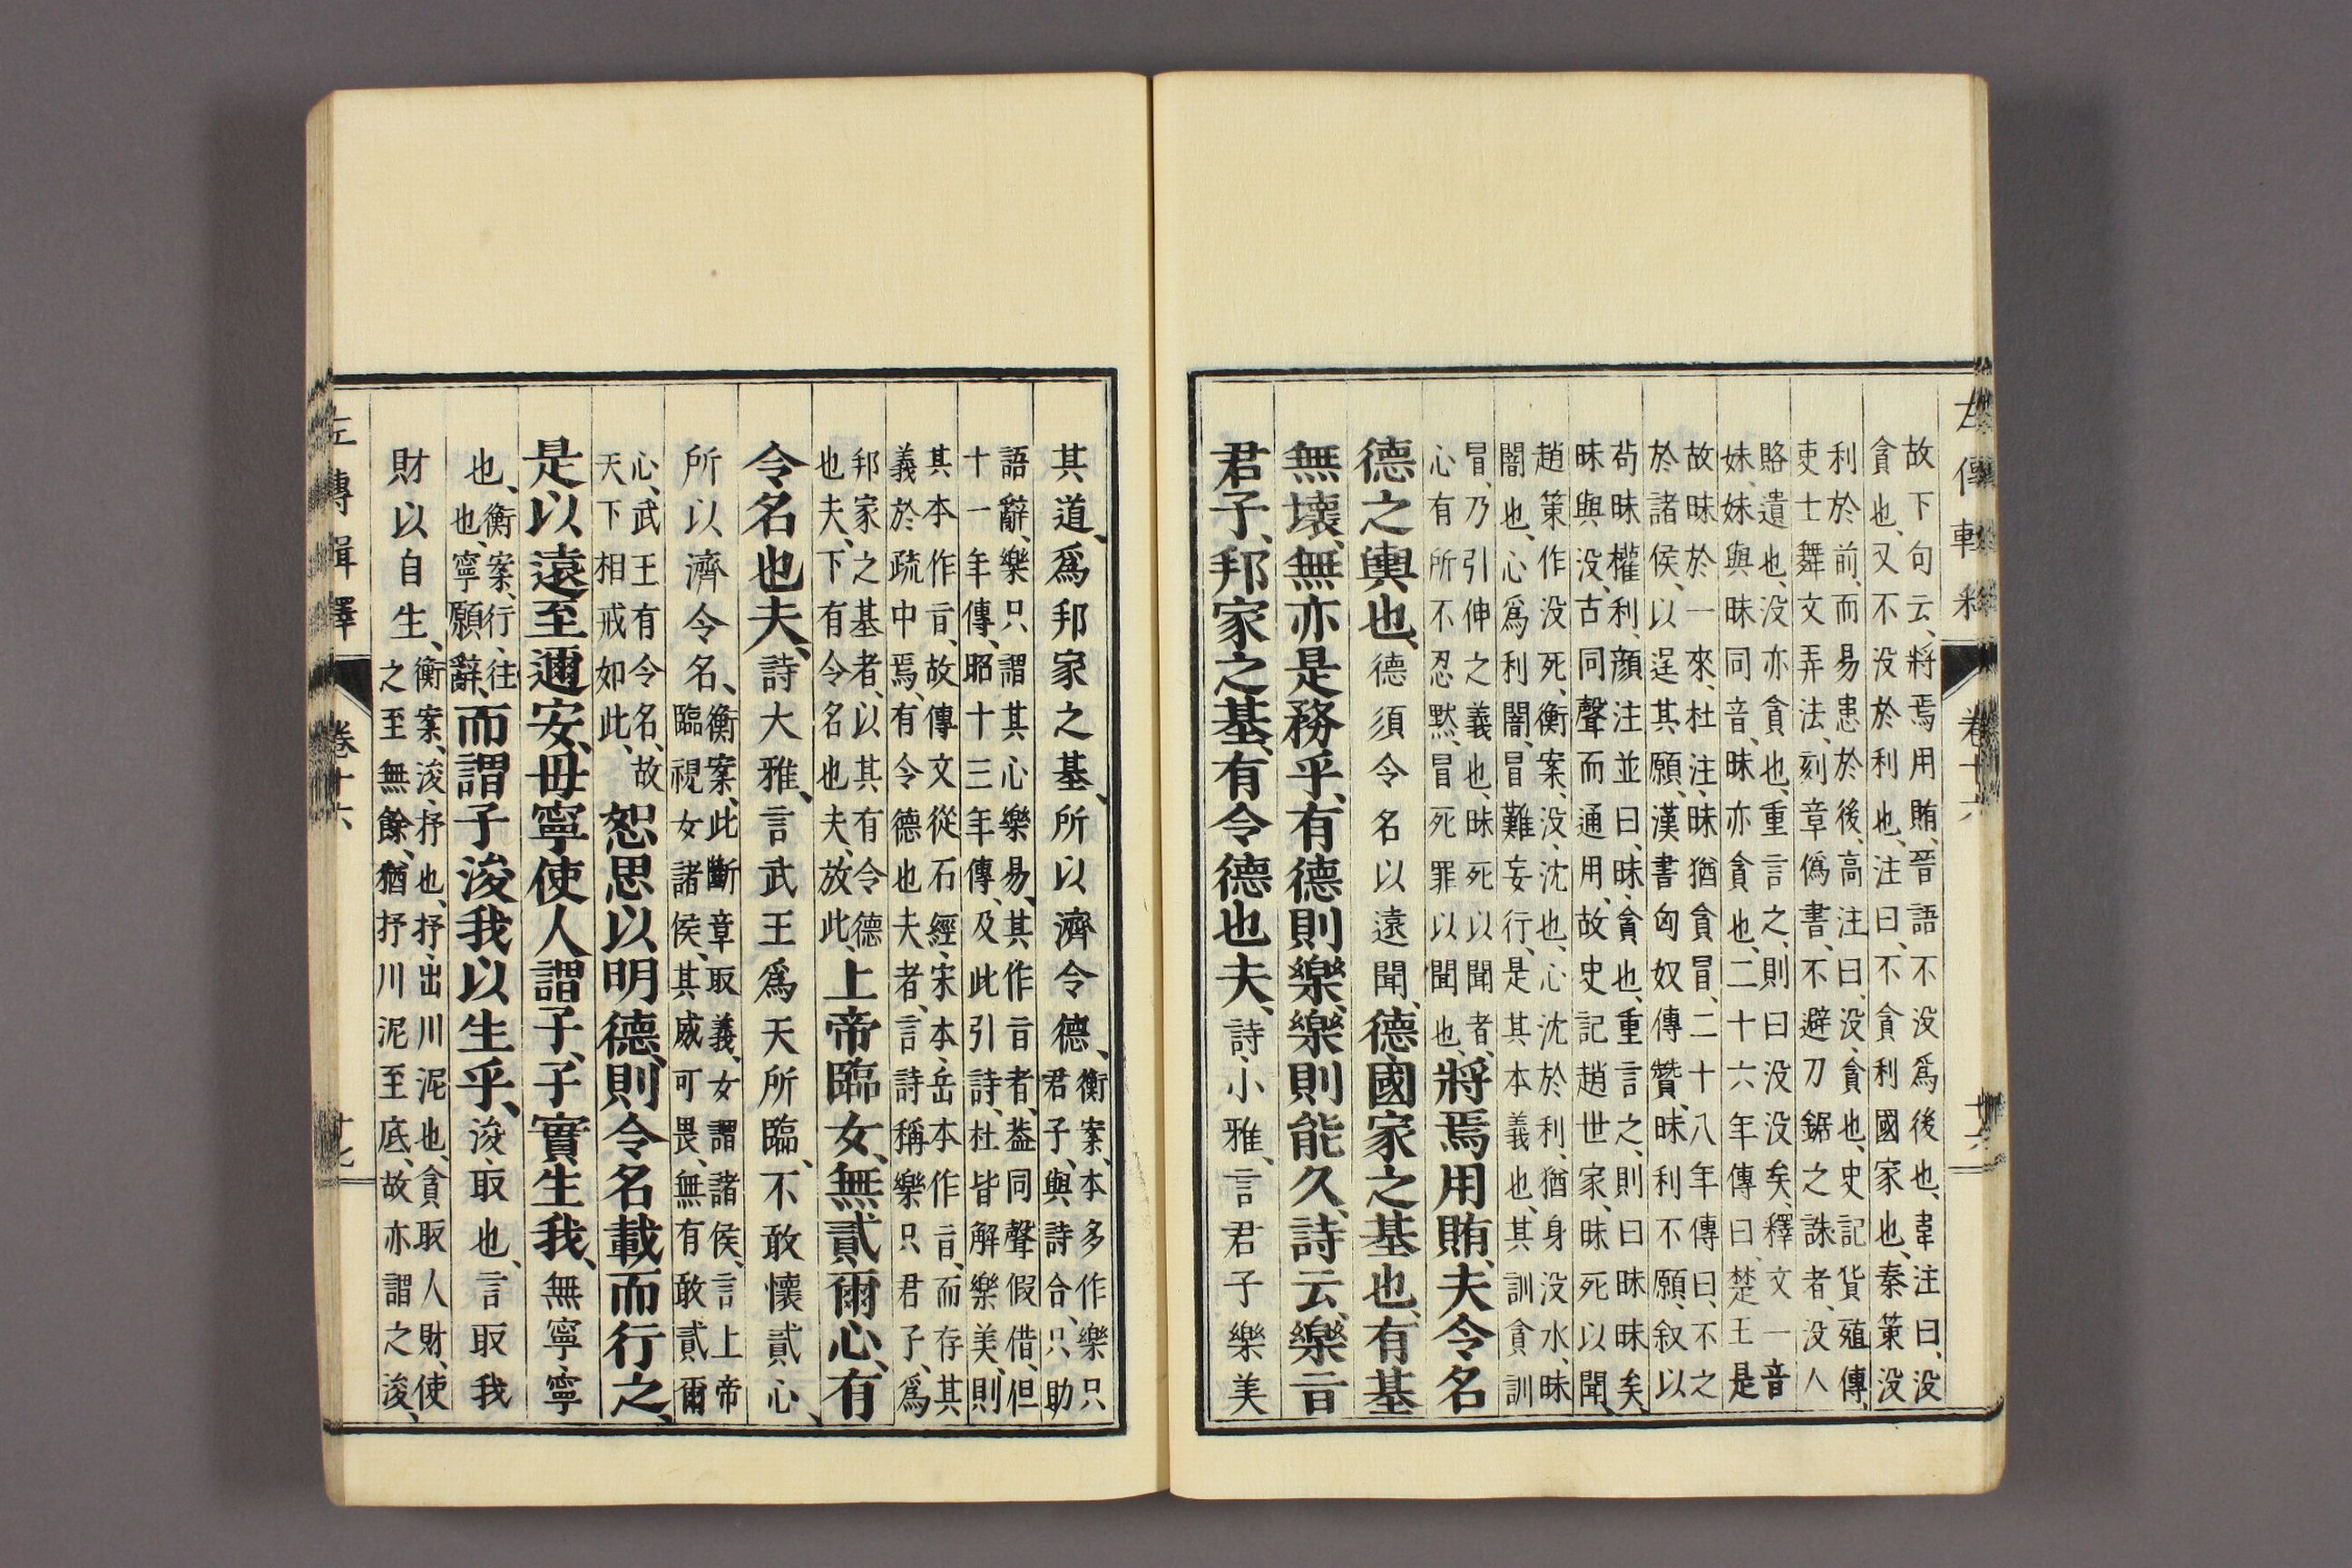 左傳輯釋 卷十六 十六
故下句云、將焉用賄、晉語不没爲後也、韋注曰、没
貪也、又不没於利也、注曰、不貪利國家也、秦策没
利於前、而易患於後、高注曰、没、貪也、史記貨殖傳、
吏士舞文弄法、刻章僞書、不避刀鋸之誅者、没人
賂遺也、没亦貪也、重言之、則曰没没矣、釋文一音
妹、妹與昧同音、昧亦貪也、二十六年傳曰、楚王是
故昧於一來、杜注、昧猶貪冒、二十八年傳曰、不之
於諸侯、以逞其願、漢書匈奴傳贊、昧利不願、叙以
苟昧權利、顔注並曰、昧、貪也、重言之、則曰昧昧矣、
昧與没、古同聲而通用、故史記趙世家、昧死以聞、
趙策作没死、衡案、没、沈也、心沈於利、猶身没水、昧
闇也、心爲利闇、冒難妄行、是其本義也、其訓貪訓
冒、乃引伸之義也、昧死以聞者、
心有所不忍默、冒死罪以聞也、
將焉用賄、夫令名
德之輿也、德須令名以遠聞、德國家之基也、有基
無壞、無亦是務乎、有德則樂、樂則能久、詩云、樂旨
君子、邦家之基、有令德也夫、詩、小雅、言君子樂美
其道、爲邦家之基、所以濟令德、
衡案、本多作樂只
君子、與詩合、只助
語辭、樂只謂其心樂易、其作旨者、葢同聲假借、但
十一年傳、昭十三年傳、及此引詩、杜皆解樂美、則
其本作旨、故傳文從石經、宋本、岳本作旨、而存其
義於疏中焉、有令德也夫者、言詩稱樂只君子、爲
邦家之基者、以其有令德
也夫、下有令名也夫、放此、
上帝臨女、無貳爾心、有
令名也夫、詩大雅、言武王爲天所臨、不敢懷貳心、
所以濟令名、
衡案、此斷章取義、女謂諸侯、言上帝
臨視女諸侯、其威可畏、無有敢貳爾
心、武王有令名、故
天下相戒如此、
恕思以明德、則令名載而行之、
是以遠至邇安、毋寧使人謂子、子實生我、無寧、寧
也、
衡案、行、往
也、寧願辭、
而謂子浚我以生乎、浚、取也、言取我
財以自生、
衡案、浚、抒也、抒、出川泥也、貪取人財、使
之至無餘、猶抒川泥至底、故亦謂之浚、
左傳輯釋 卷十六 十七